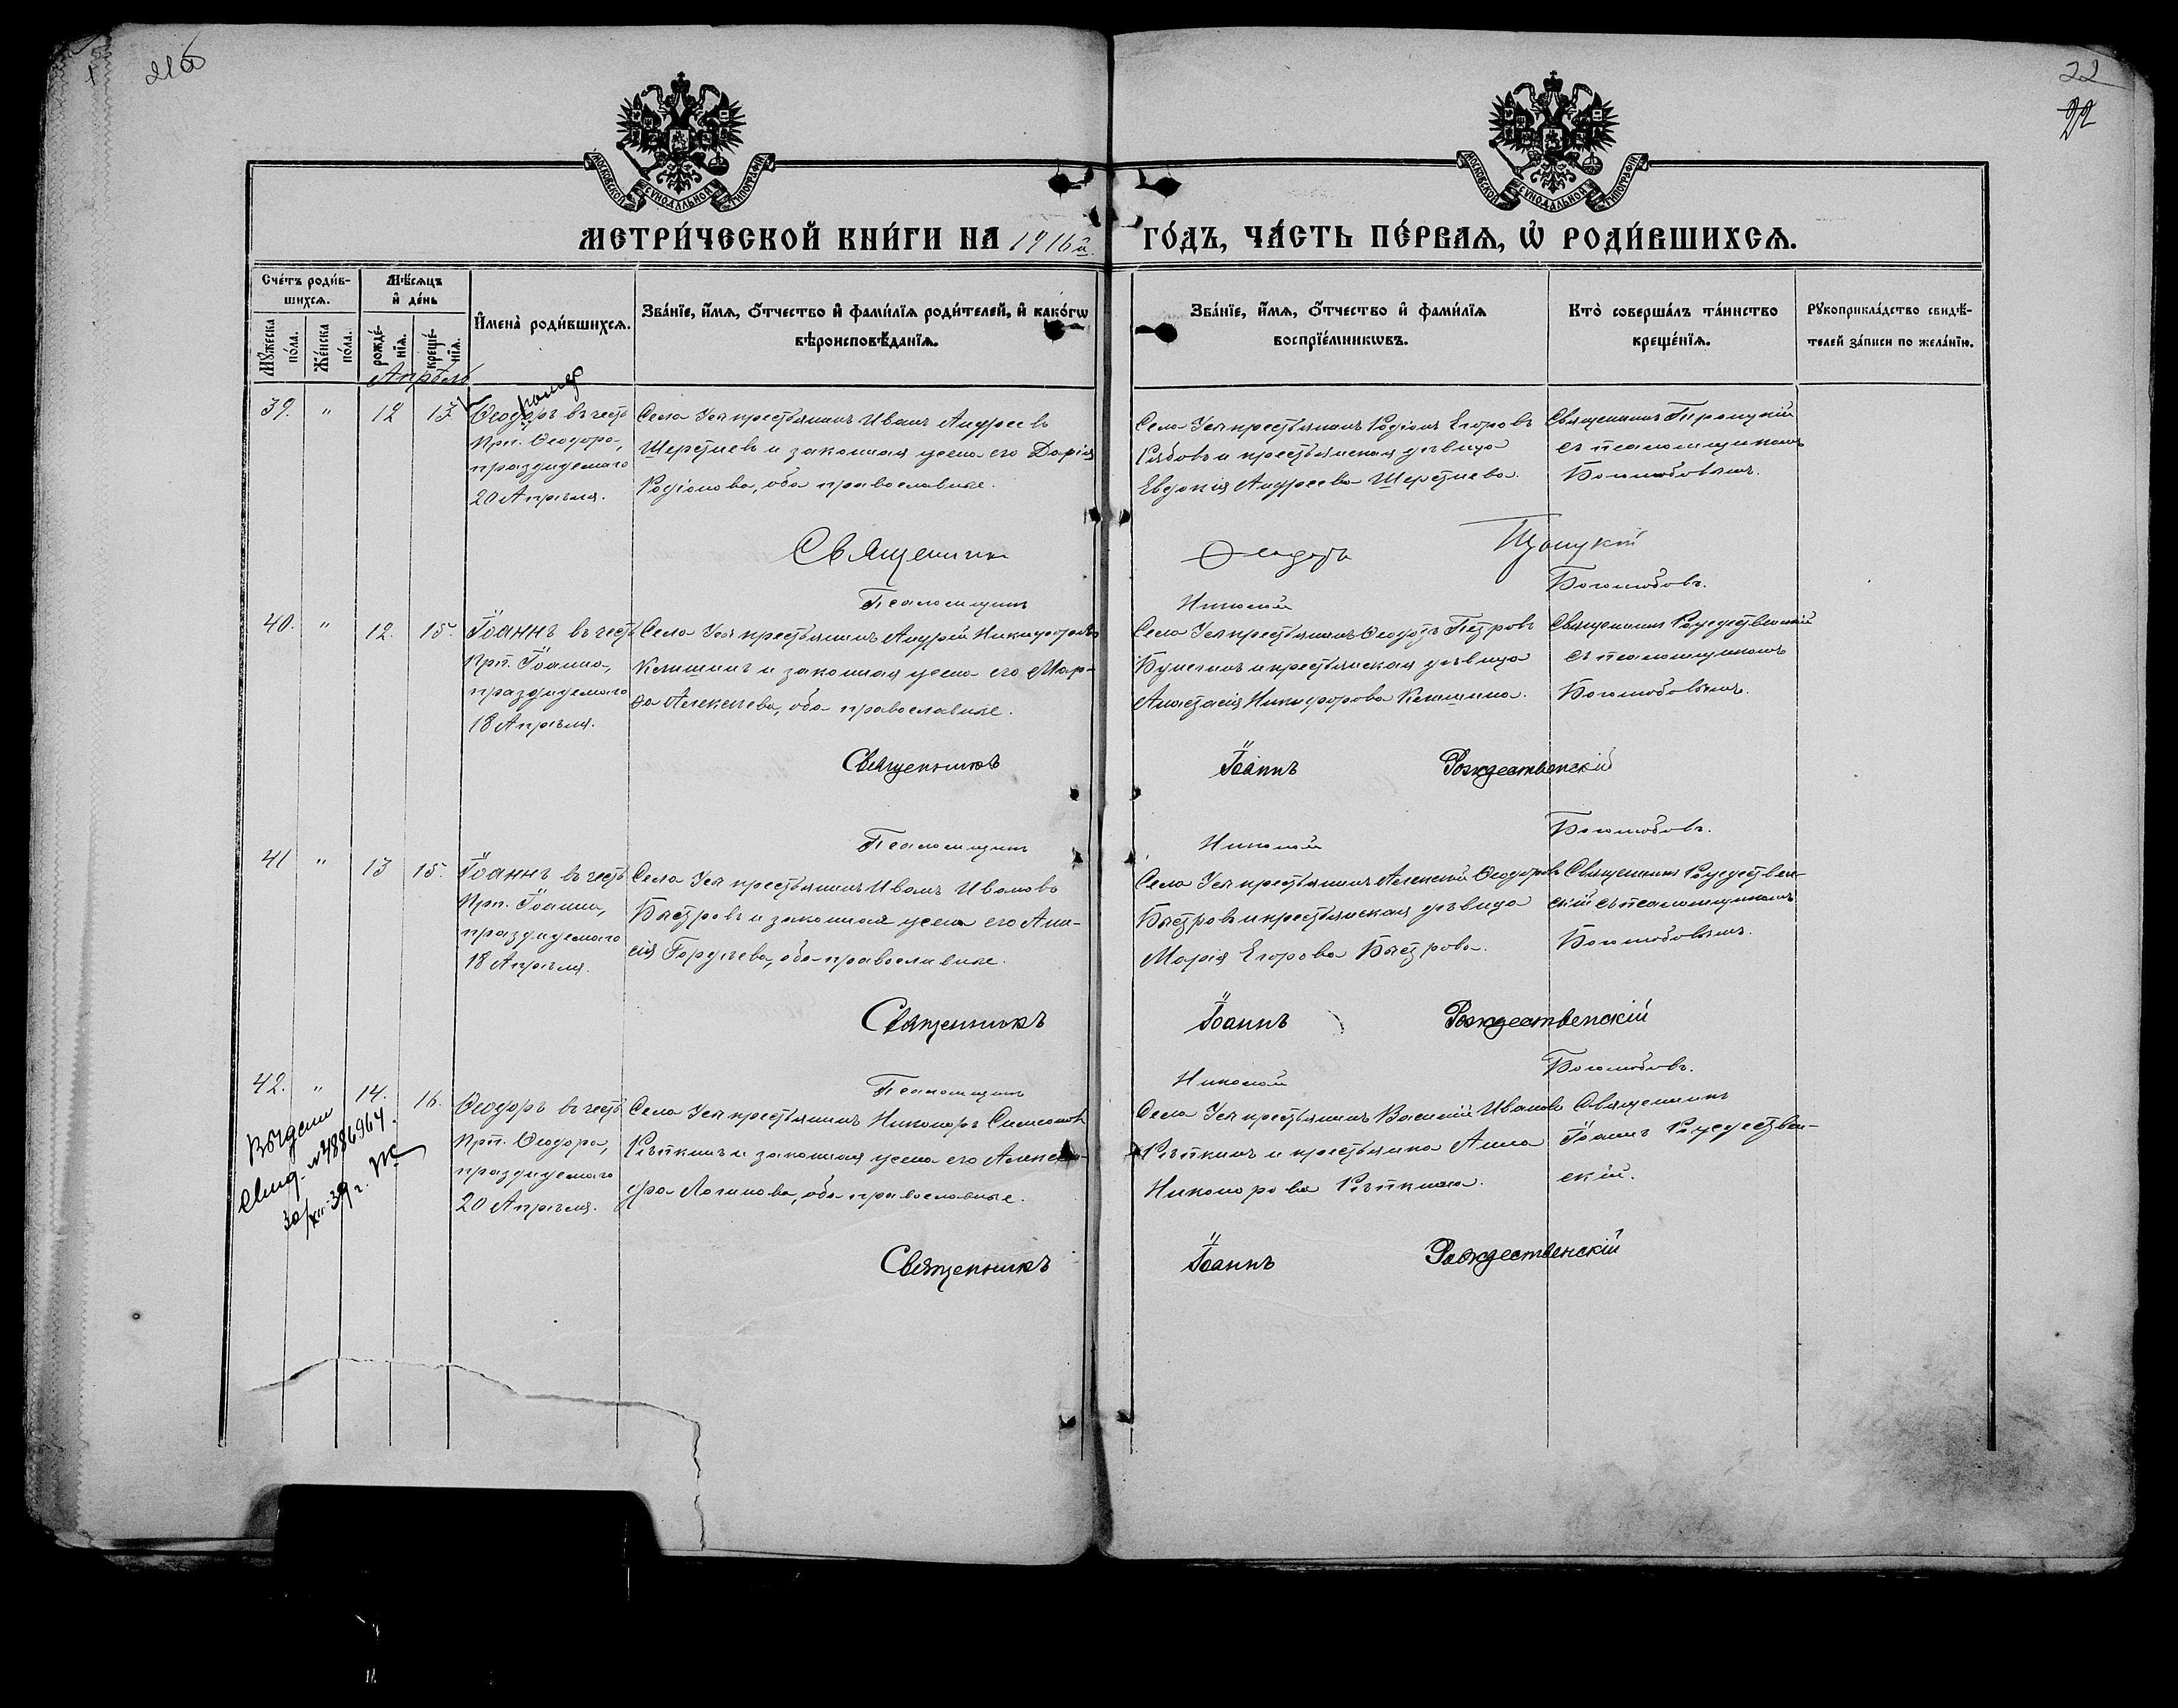 21об
22
22
МОСКОВСКОЙ СУНОДАЛЬНОЙ ТИПОГРАФІИ
МОСКОВСКОЙ СУНОДАЛЬНОЙ ТИПОГРАФІИ
МЕТРИ́ЧЕСКОЙ КНИ́ГИ НА 1916й.
ГО́ДЪ, ЧА́СТЬ ПЕ́РВАѦ, Ѡ҆ РОДИ́ВШИХСѦ.
Сче́тъ роди́в-
шихсѧ.
Мꙋ́жеска по́ла.
Же́нска по́ла.
Мѣ́сѧцъ
и҆ де́нь
рожде́-
нїѧ.
креще́-
нїѧ.
И҆мена̀ роди́вшихсѧ.
Зва́нїе, и҆́мѧ, ѻ҆́тчество и҆ фами́лїѧ роди́телей, и҆ како́гѡ
вѣроисповѣ́данїѧ.
Зва́нїе, и҆́мѧ, ѻ҆́тчество и҆ фами́лїѧ
воспрїе́мникѡвъ.
Кто̀ соверша́лъ та́инство
креще́нїѧ.
Рꙋкоприкла́дство свидѣ́-
телей за́писи по жела́нїю.
Апрѣль
39. " 12 13.
Ѳеодоръ въ честь
Прп. Ѳеодора,
празднуемаго
20 Апрѣля.
Села Уся крестьянинъ Иванъ Андреевъ
Шерстневъ и законная жена его Дарія
Родіонова, оба православные.
Села Уся крестьянинъ Родіонъ Егоровъ
Рябовъ и крестьянская дѣвица
Евдокія Андреева Шерстнева.
Священникъ Троицкій
съ псаломщикомъ
Боголюбовымъ.
Священникъ Ѳеодоръ Троицкій
Псаломщикъ Николай Боголюбовъ.
40. " 12. 15.
Іоаннъ въ честь
Прп. Іоанна,
празднуемаго
18 Апрѣля.
Села Уся крестьянинъ Андрей Никифоровъ
Кемшинъ и законная жена его Мар-
ѳа Алексѣева, оба православные.
Села Уся крестьянинъ Ѳеодотъ Петровъ
Бунегинъ и крестьянская дѣвица
Анастасія Никифорова Кемшина.
Священникъ Рождественскій
съ псаломщикомъ
Боголюбовымъ.
Священникъ Іоаннъ Рождественскій
Псаломщикъ Николай Боголюбовъ.
41 " 13 15.
Іоаннъ въ честь
Прп. Іоанна,
празднуемаго
18 Апрѣля.
Села Уся крестьянинъ Иванъ Ивановъ
Быстровъ и законная жена его Ани-
сія Гордѣева, оба православные.
Села Уся крестьянинъ Алексѣй Ѳеодоровъ
Быстровъ и крестьянская дѣвица
Марія Егорова Быстрова.
Священникъ Рождествен-
скій съ псаломщикомъ
Боголюбовымъ.
Священникъ Іоаннъ Рождественскій
Псаломщикъ Николай Боголюбовъ.
42. " 14. 16.
Выдано
свид. №4886964.
30/XII-39 г.
Ѳеодоръ въ честь
Прп. Ѳеодора,
празднуемаго
20 Апрѣля.
Села Уся крестьянинъ Никаноръ Симеоновъ
Рѣпкинъ и законная жена его Алексан-
дра Логинова, оба православные.
Села Уся крестьянинъ Василій Ивановъ
Рѣпкинъ и крестьянка Анна
Никанорова Рѣпкина.
Священникъ
Іоаннъ Рождествен-
скій.
Священникъ Іоаннъ Рождественскій